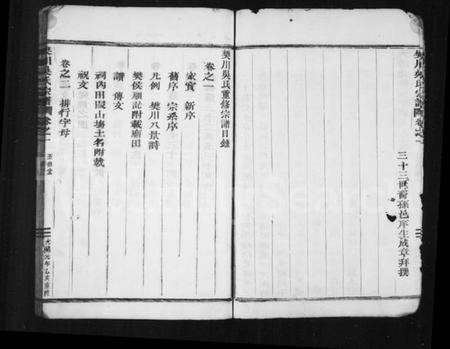 三十三世裔孫邑庠生成章拜撰
樊川吳氏重修宗譜目錄
卷之一
家寶 新序
舊序 宗系序
凡例 樊川八景詩
樊侯廟記附載廟田
譜傳文
祠內田園山塲土名附載
祝文
卷之二 排行字母
樊川吳氏宗譜
卷之一
光緒元年乙亥重修